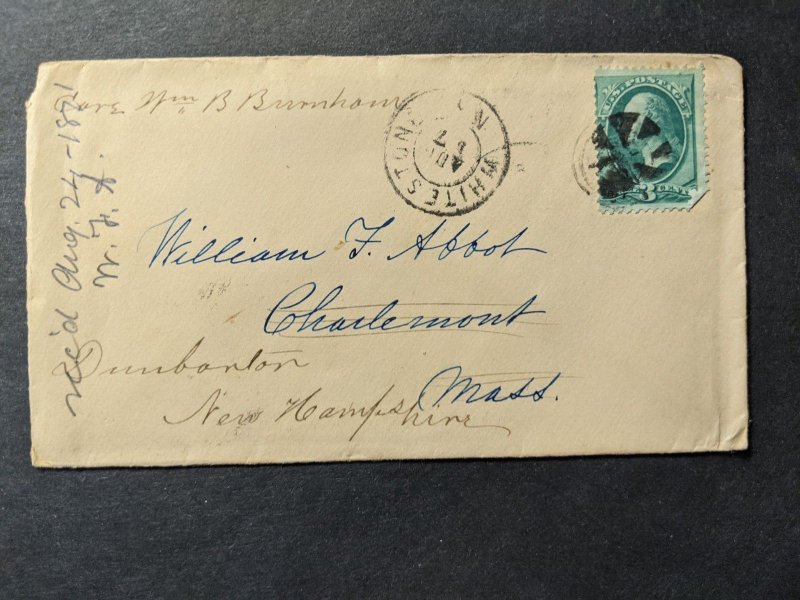 Care Wm B Burnham
WHITESTONE N.Y.
AUG
7
U.S. POSTAGE
3 CENTS
William F. Abbot
Charlemont
Mass.
Dunbarton
New Hampshire
rec'd Aug. 24-1871
W. F. A.